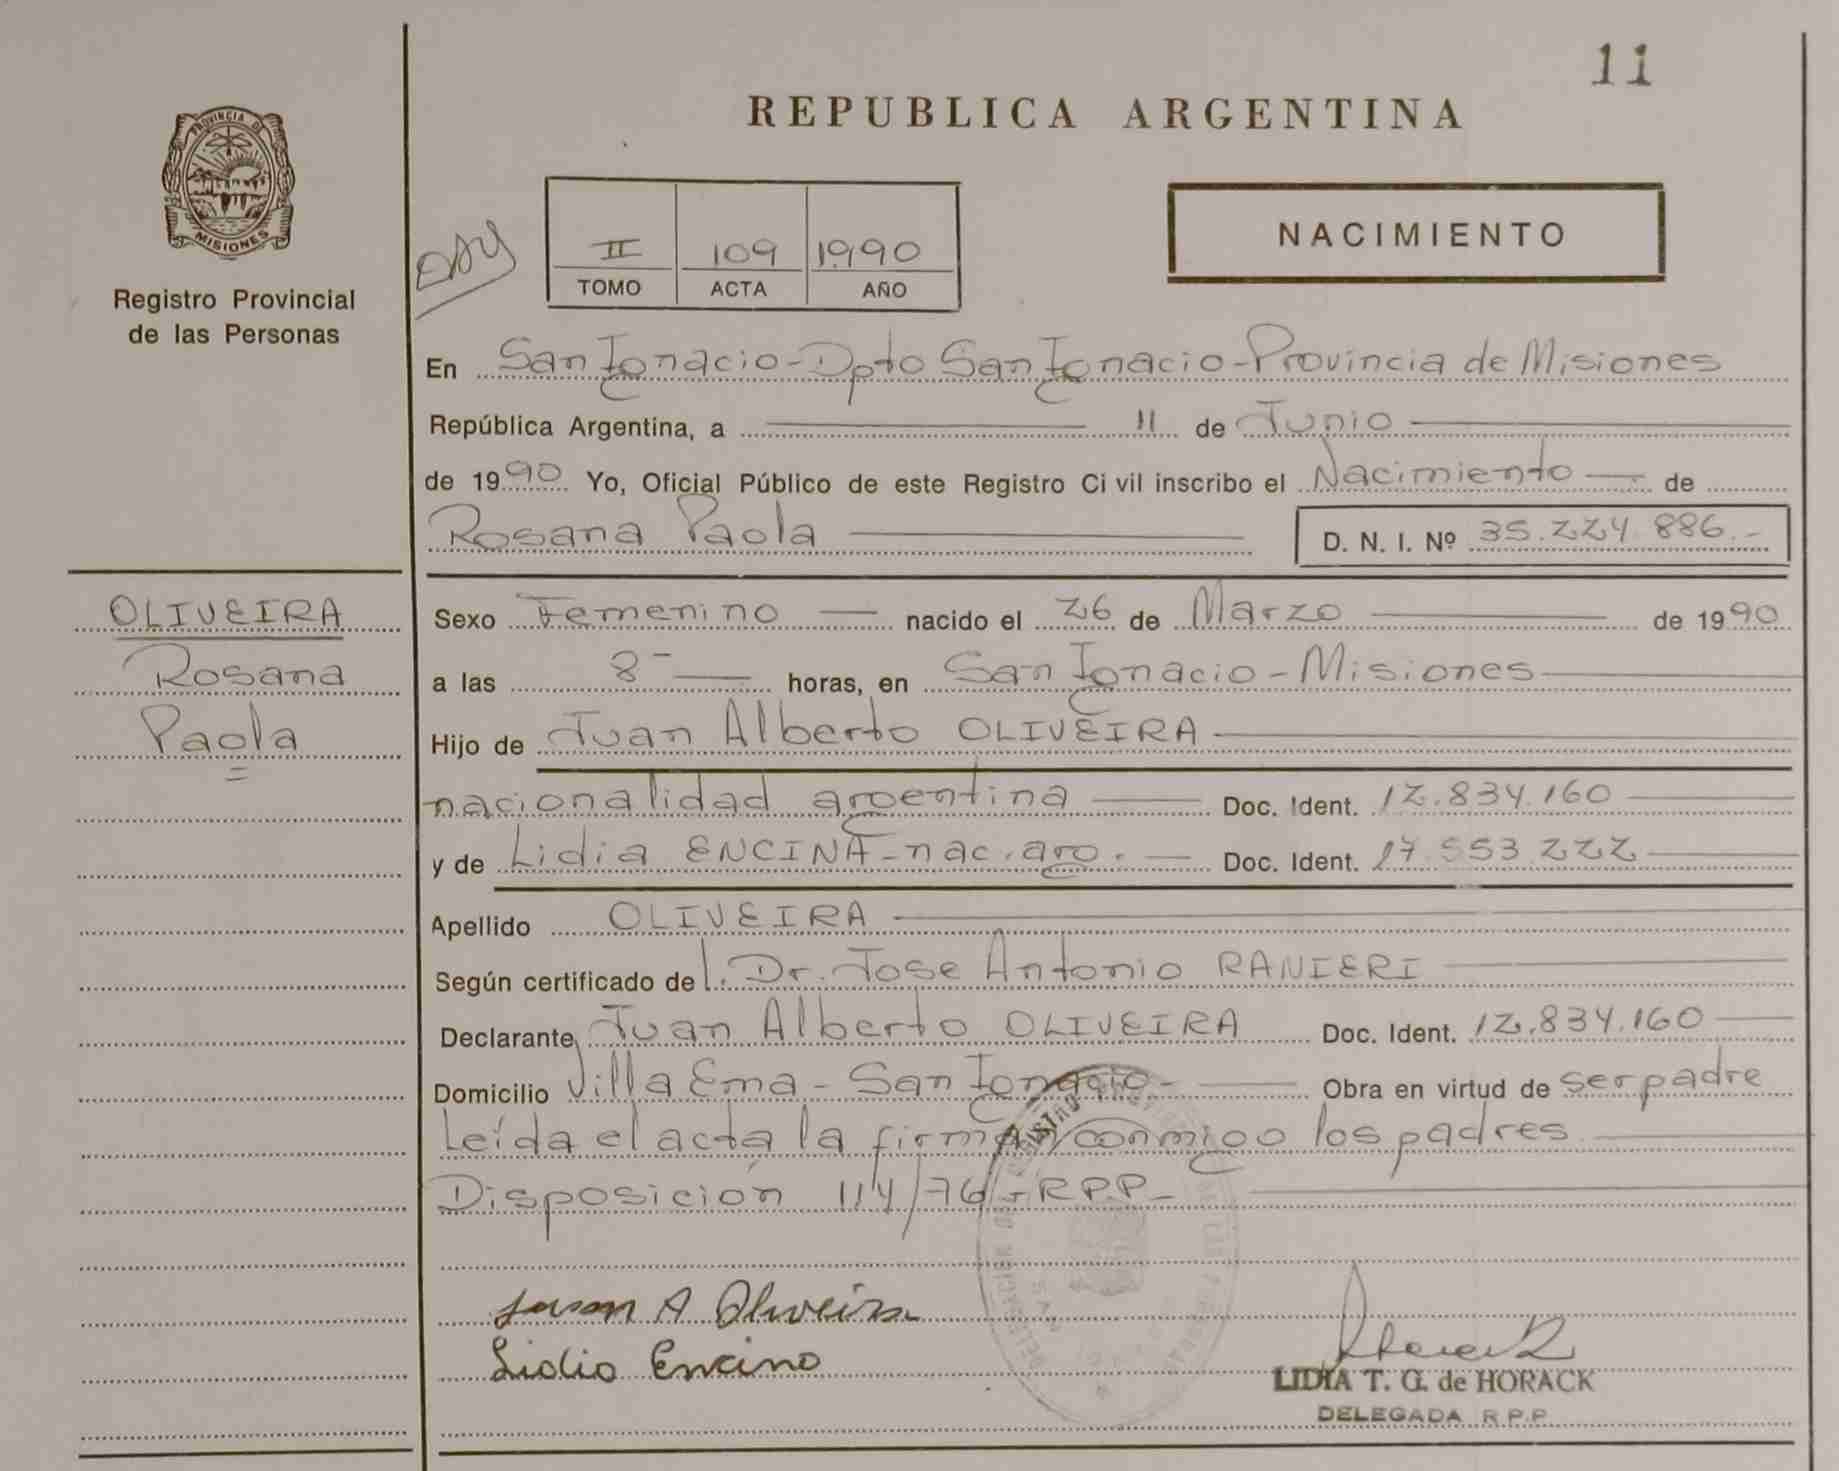 11
REPUBLICA ARGENTINA
PROVINCIA DE
MISIONES
Registro Provincial
de las Personas
II 109 1990
TOMO ACTA AÑO
NACIMIENTO
En San Ignacio - Dpto San Ignacio - Provincia de Misiones
República Argentina, a 11 de Junio
de 1990 Yo, Oficial Público de este Registro Ci vil inscribo el Nacimiento de
Rosana Paola D. N. I. Nº 35.224.886.-
OLIVEIRA
Rosana
Paola
Sexo Femenino nacido el 26 de Marzo de 1990
a las 8 horas, en San Ignacio - Misiones
Hijo de Juan Alberto OLIVEIRA
nacionalidad argentina Doc. Ident. 12.834.160
y de Lidia ENCINA - nac. arg. Doc. Ident. 17.553.222
Apellido OLIVEIRA
Según certificado de l. Dr. Jose Antonio RANIERI
Declarante Juan Alberto OLIVEIRA Doc. Ident. 12.834.160
Domicilio Villa Ema - San Ignacio - Obra en virtud de ser padre
Leída el acta la firman conmigo los padres
Disposición 114/76 - RPP -
Juan A Oliveira
Lidia Encina
LIDIA T. G. de HORACK
DELEGADA R.P.P.